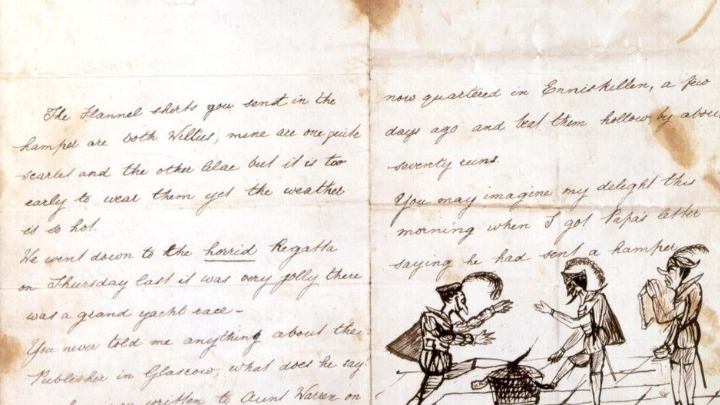 The Flannel shirts you sent in the
hamper are both Willies, mine are one quite
scarlet and the other lilac but it is too
early to wear them yet the weather
is so hot.
We went down to the horrid Regatta
on Thursday last it was very jolly there
was a grand yacht race -
You never told me anything about the
Publisher in Glascow, what does he say
written to Aunt Warren on
now quartered in Enniskillen, a few
days ago and beat them hollow by abou
seventy runs
You may imagine my delight this
morning when I got Papa's letter
saying he had sent a hamper